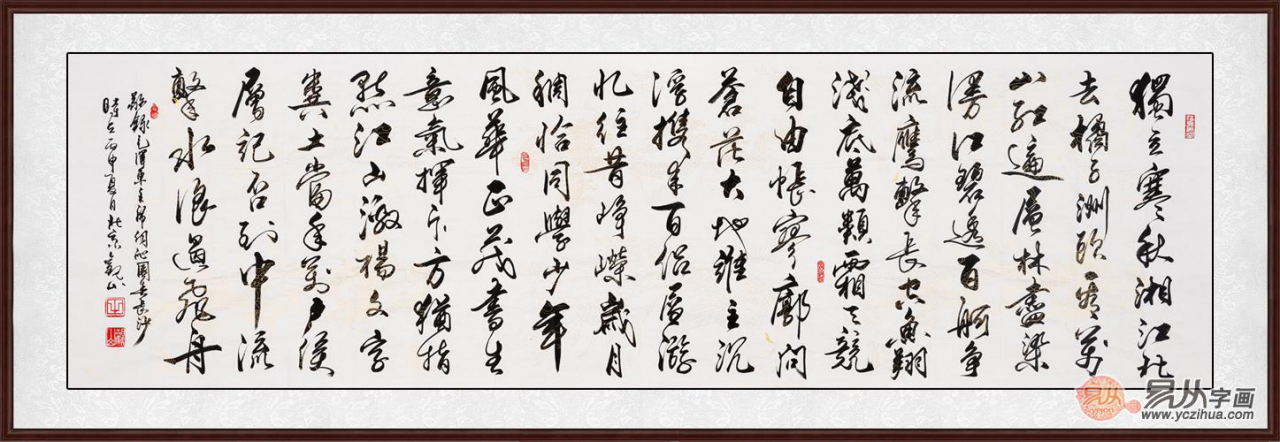 獨立寒秋湘江北
去橘子洲頭看萬
山紅遍層林盡染
漫江碧透百舸爭
流鷹擊長空魚翔
淺底萬類霜天競
自由悵寥廓問
蒼茫大地誰主沉
浮攜來百侶曾遊
忆往昔崢嶸歲月
稠恰同學少年
風華正茂書生
意氣揮斥方遒指
點江山激揚文字
糞土當年萬戶侯
曾記否到中流
擊水浪遏飛舟
錄毛澤東主席詞沁園春長沙
時在丙申夏月於京觀山
易从
易从字画
www.yczihua.com